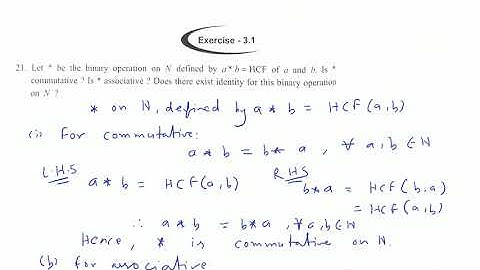 Exercise - 3.1
21. Let * be the binary operation on N defined by a * b = HCF of a and b. Is *
commutative ? Is * associative ? Does there exist identity for this binary operation
on N ?
* on N, defined by a * b = HCF(a,b)
(i) For commutative:
a * b = b * a , ∀ a,b ∈ N
L.H.S R.H.S
a * b = HCF(a,b) b * a = HCF(b,a)
= HCF(a,b)
∴ a * b = b * a, ∀ a,b ∈ N
Hence, * is commutative on N.
(b) for associative